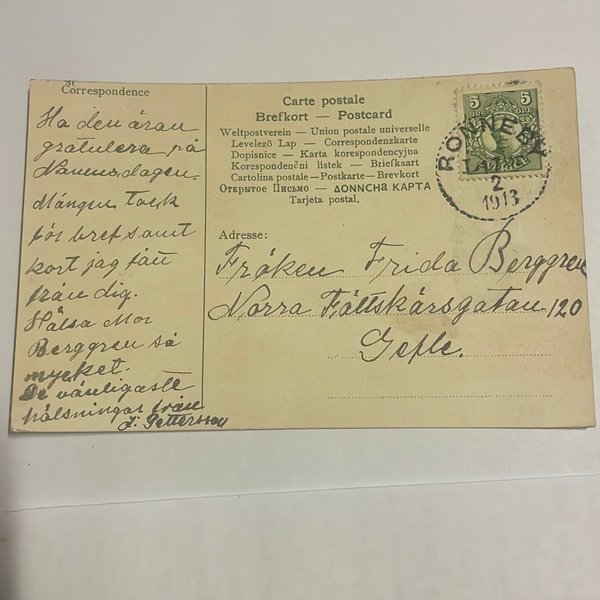 Correspondence
Ha den äran
gratulera på
Namnsdagen.
Mången tack
för bref samt
kort jag fått
från dig.
Hälsa Mor
Berggren så
mycket.
De vänligaste
hälsningar från
J. Pettersson
Carte postale
Brefkort — Postcard
Weltpostverein — Union postale universelle
Levelező Lap — Correspondenzkarte
Dopisnice — Karta korespondencyjna
Korespondenční listek — Briefkaart
Cartolina postale — Postkarte — Brevkort
Открытое Письмо — ΔΟΝΝCHA KAPTA
Tarjeta postal.
5 5
ÖRE ÖRE
SVERIGE
RONNEBY
2
1913
Adresse:
Fröken Frida Berggren
Norra Fältskärsgatan 120
Gefle.